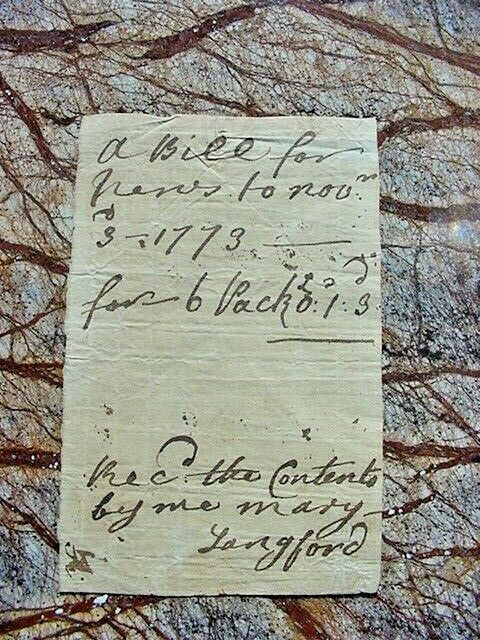 a Bill for
to nov.r
3d - 1773 —
for 6 Pack 0:1:3
Recd the Contents
by me mary
Langford